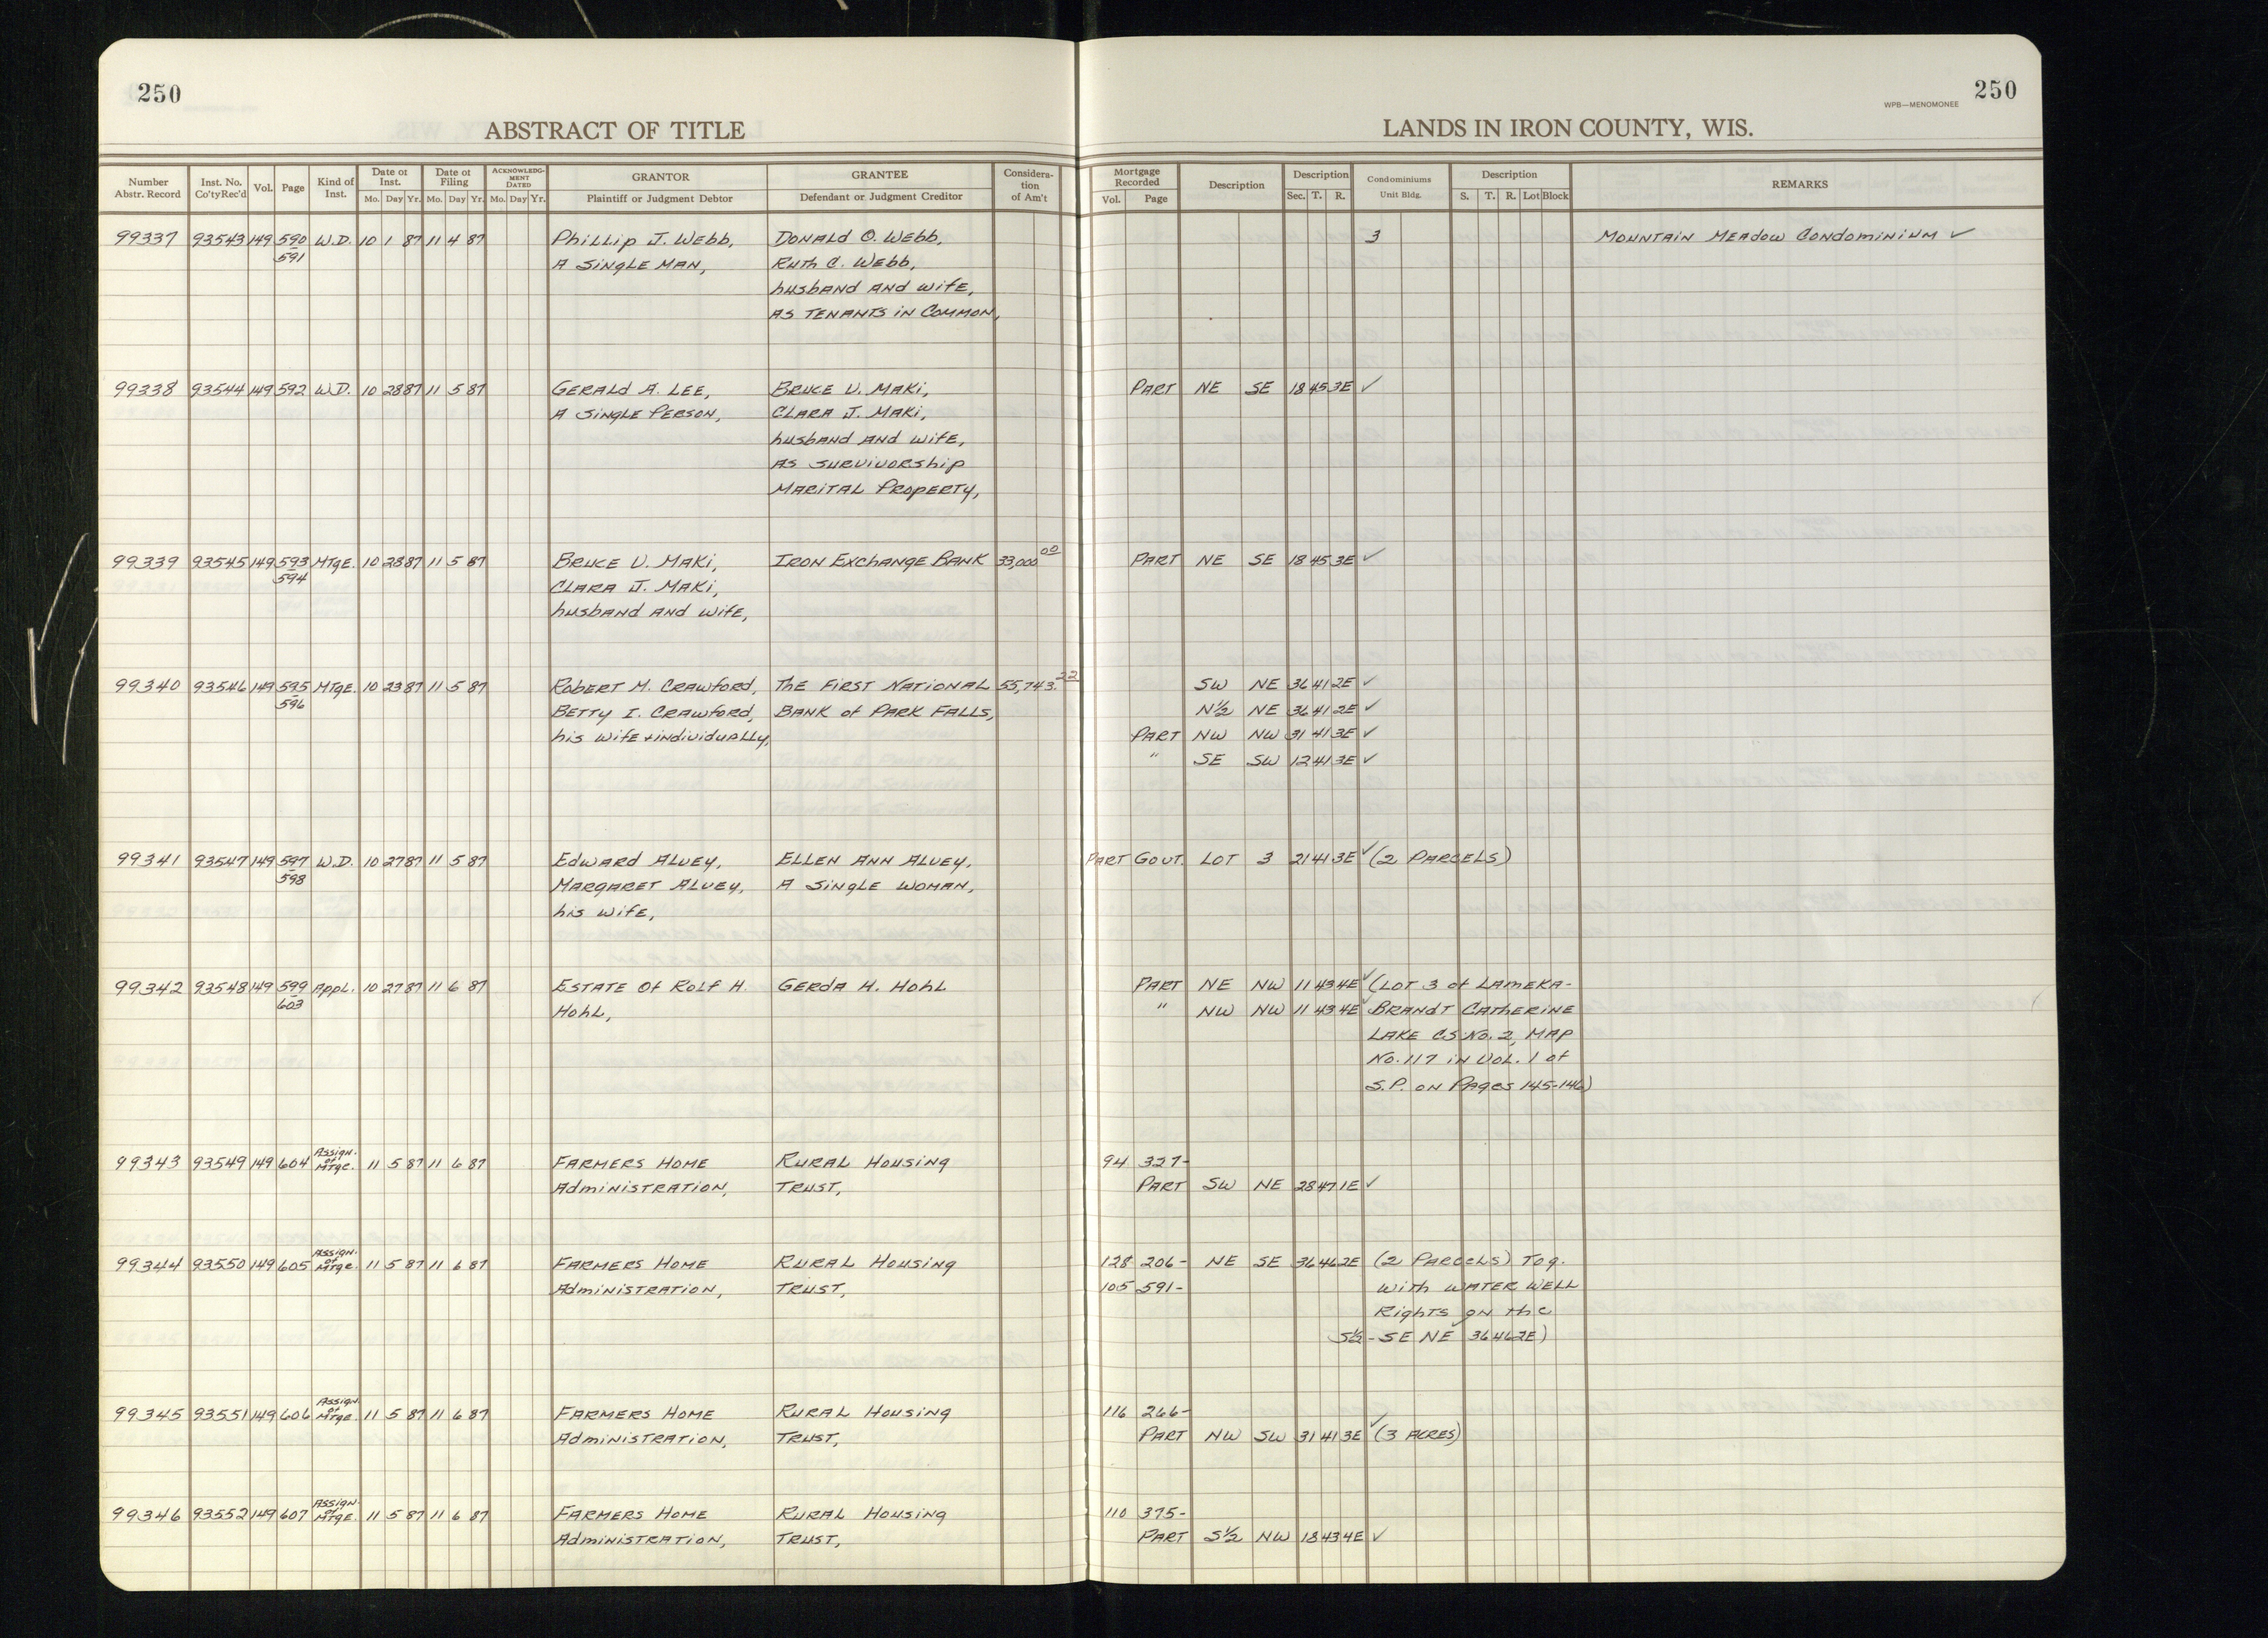 250
250
WPB—MENOMONEE
ABSTRACT OF TITLE
LANDS IN IRON COUNTY, WIS.
Number Abstr. Record | Inst. No. Co'ty Rec'd | Vol. | Page | Kind of Inst. | Date of Inst. Mo. Day Yr. | Date of Filing Mo. Day Yr. | ACKNOWLEDGMENT DATED Mo. Day Yr. | GRANTOR Plaintiff or Judgment Debtor | GRANTEE Defendant or Judgment Creditor | Consideration of Am't | Mortgage Recorded Vol. Page | Description | Description Sec. T. R. | Condominiums Unit Bldg. | Description S. T. R. Lot Block | REMARKS
99337 93543 149 590 W.D. 10 1 87 11 4 87 Phillip J. Webb, Donald O. Webb, 3 Mountain Meadow Condominium ✓
591 A Single Man, Ruth C. Webb,
husband and wife,
as Tenants in Common,
99338 93544 149 592 W.D. 10 28 87 11 5 87 Gerald A. Lee, Bruce U. Maki, Part NE SE 18 45 3E ✓
A Single Person, Clara J. Maki,
husband and wife,
as survivorship
Marital Property,
99339 93545 149 593 Mtge. 10 28 87 11 5 87 Bruce U. Maki, Iron Exchange Bank 33,000 00 Part NE SE 18 45 3E ✓
594 Clara J. Maki,
husband and wife,
99340 93546 149 595 Mtge. 10 23 87 11 5 87 Robert M. Crawford, The First National 55,743.22 SW NE 36 41 2E ✓
596 Betty I. Crawford, Bank of Park Falls, N½ NE 36 41 2E ✓
his wife + individually, Part NW NW 31 41 3E ✓
" SE SW 12 41 3E ✓
99341 93547 149 597 W.D. 10 27 87 11 5 87 Edward Aluey, Ellen Ann Aluey, Part Govt. Lot 3 21 41 3E ✓ (2 Parcels)
598 Margaret Aluey, A Single Woman,
his wife,
99342 93548 149 599 Appl. 10 27 87 11 6 87 Estate of Rolf H. Gerda H. Hohl Part NE NW 11 43 4E ✓ (Lot 3 of Lameka-
603 Hohl, " NW NW 11 43 4E ✓ Brandt Catherine
Lake CS No. 2, Map
No. 117 in Vol. 1 of
S.P. on Pages 145-146)
99343 93549 149 604 Assign. of Mtge. 11 5 87 11 6 87 Farmers Home Rural Housing 94 327-
Administration, Trust, Part SW NE 28 47 1E ✓
99344 93550 149 605 Assign. of Mtge. 11 5 87 11 6 87 Farmers Home Rural Housing 128 206- NE SE 36 46 2E (2 Parcels) Tog.
Administration, Trust, 105 591- with water well
Rights on the
S½ - SE NE 36 46 2E)
99345 93551 149 606 Assign. of Mtge. 11 5 87 11 6 87 Farmers Home Rural Housing 116 266-
Administration, Trust, Part NW SW 31 41 3E ✓ (3 Acres)
99346 93552 149 607 Assign. of Mtge. 11 5 87 11 6 87 Farmers Home Rural Housing 110 375-
Administration, Trust, Part S½ NW 18 43 4E ✓